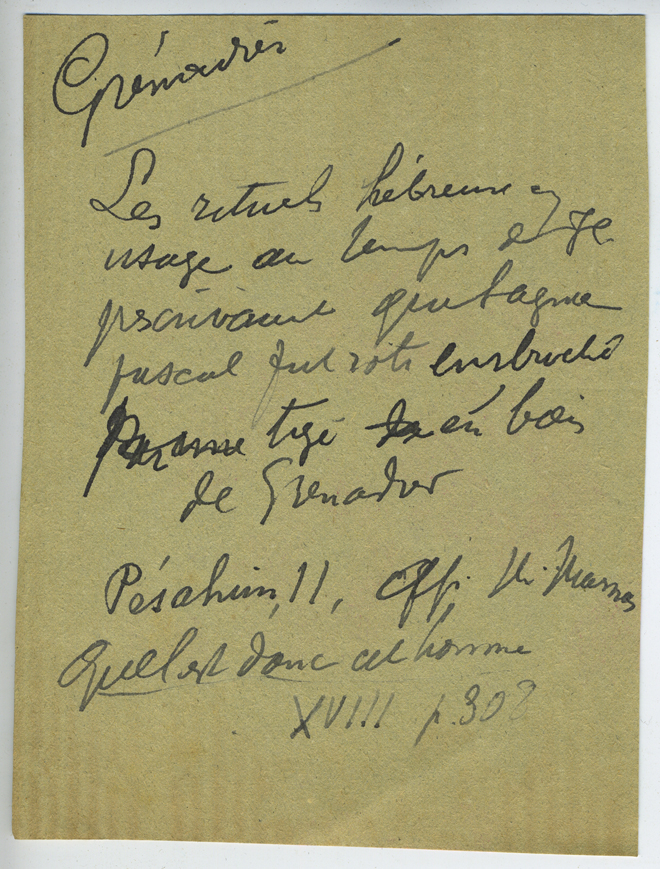 Grénadier
Les rituels hébreux en
usage au temps de J.C.
prescrivaient que l'agneau
pascal fut rôti embroché
par une tige en bois
de Grenadier
Pésahim, 11, Ch.
Quel est donc cet homme
XVIII p. 302